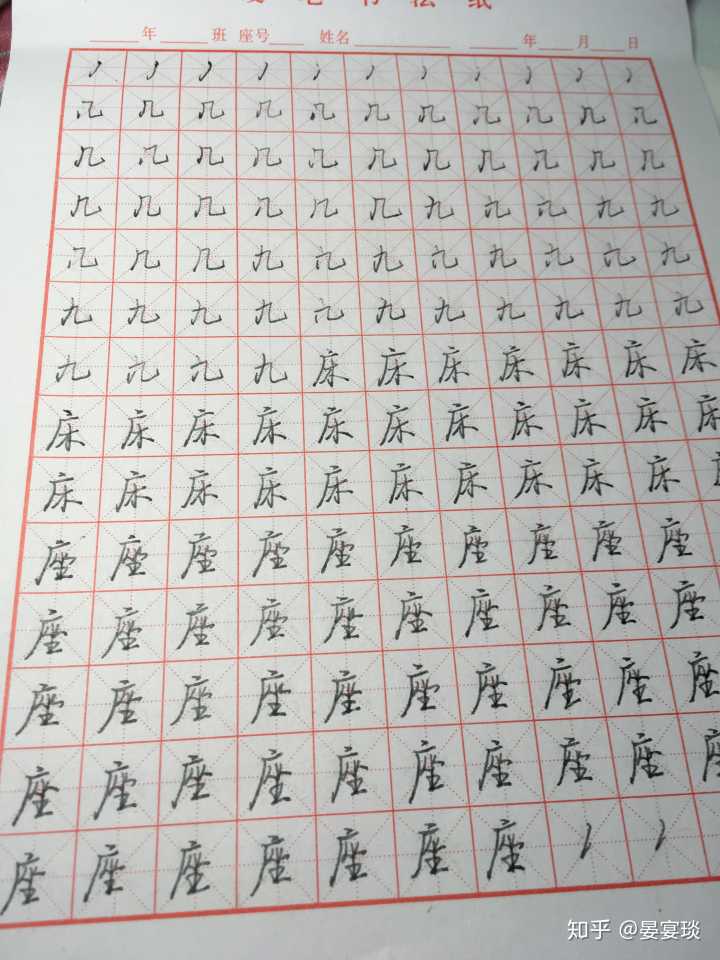 硬笔书法纸
年 班 座号 姓名 年 月 日
几几几几几几几几几几几
几几几几几几几几几几几
几几几几几几九九九九九
几几几九九九九九九九九
九九九九九九九九九九九
九九九九床床床床床床床
床床床床床床床床床床床
床床床床床床床床床床
座座座座座座座座座座
座座座座座座座座座座
座座座座座座座座座座
座座座座座座座座座
座座座座座座座
知乎 @晏宴琰